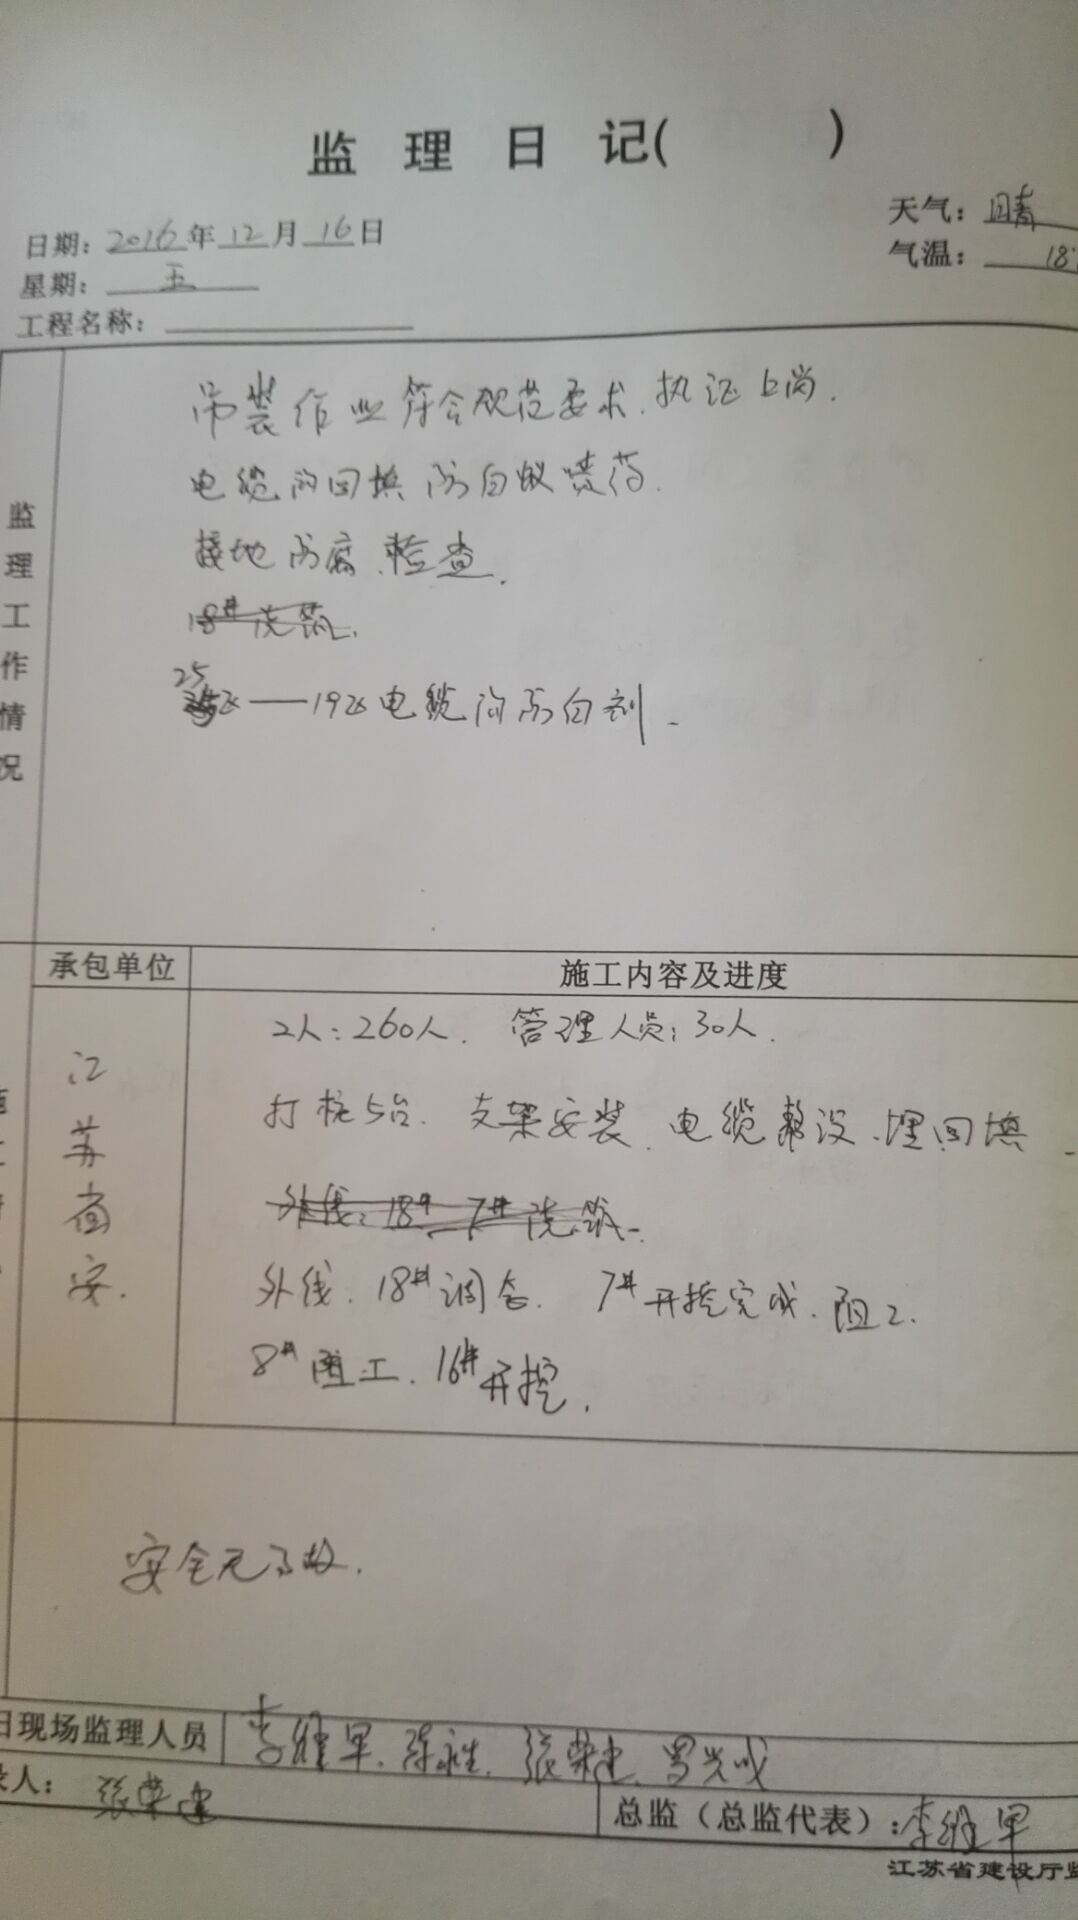 监 理 日 记(　　)
日期: 2016年12月16日
天气: 晴
星期: 五
气温: 18
工程名称:
监理工作情况
吊装作业符合规范要求.执证上岗.
电缆沟回填 防白蚁喷药.
接地防腐.检查.
18# 浇筑.
25区——19区电缆沟防白剂.
承包单位
施工内容及进度
江苏省安.
工人:260人. 管理人员:30人.
打桩5台. 支架安装. 电缆敷设.埋回填
外线:18#. 7#浇筑.
外线. 18#调合. 7#开挖完成.阻工.
8#阻工. 16#开挖.
安全无事故.
日现场监理人员 李维军.陈永生.张荣建.罗兴成
录人: 张荣建
总监（总监代表）:李维军
江苏省建设厅监